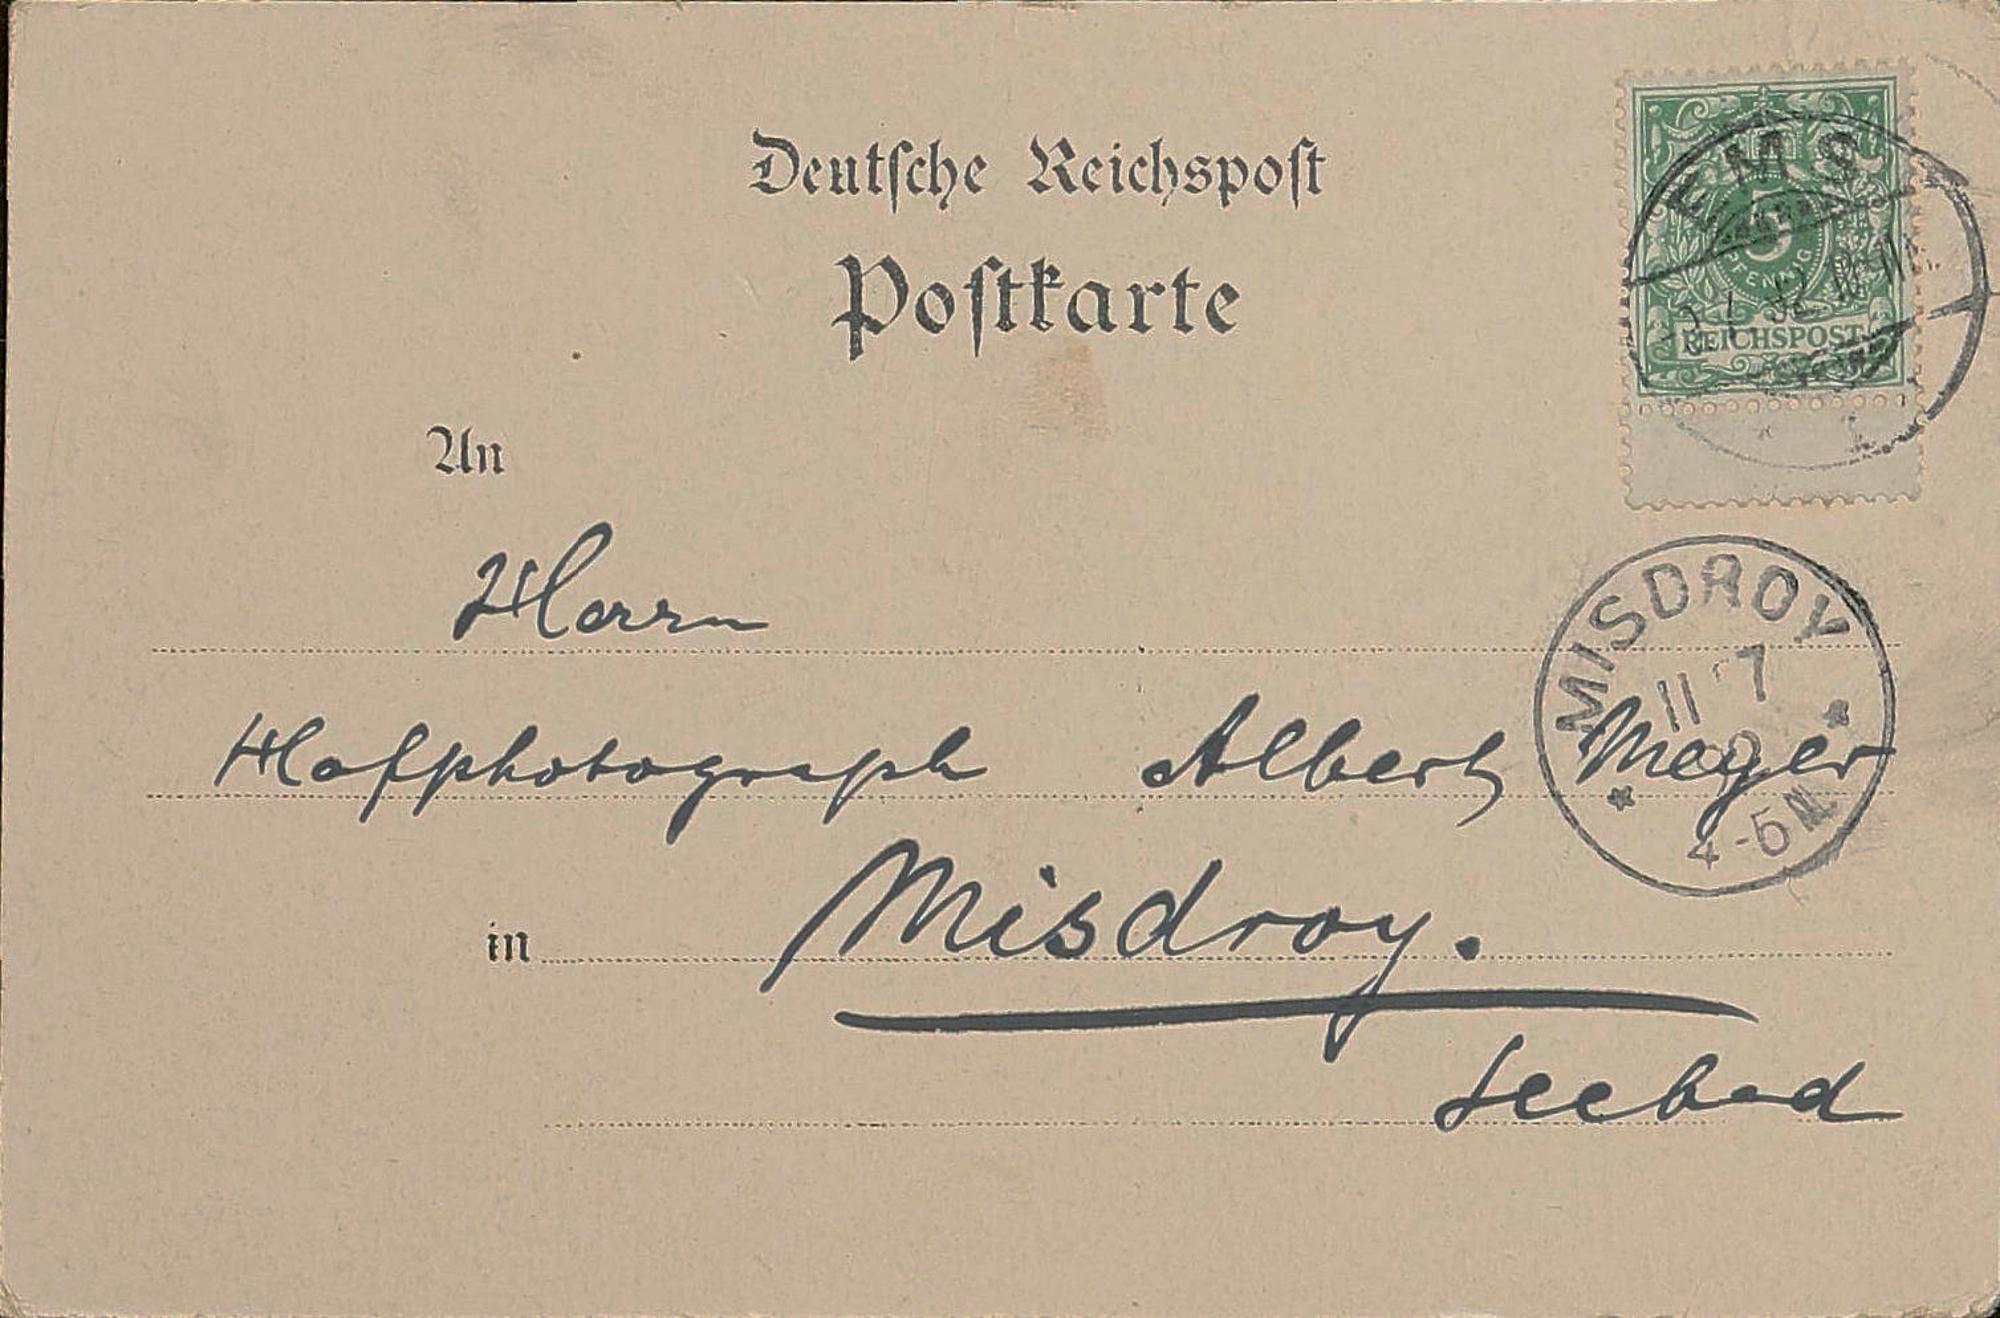 Deutsche Reichspost
Postkarte
EMS
5
PFENNIG
REICHSPOST
An
Herrn
MISDROY
11 7
4-5 N.
Hofphotograph Albert Meyer
in Misdroy.
Seebad